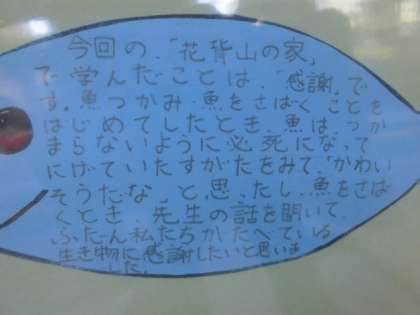 今回の、「花背山の家」
で学んだことは、「感謝」で
す。魚つかみ・魚をさばくことを
はじめてしたとき、魚は、つか
まらないように必死になって
にげていたすがたをみて、「かわい
そうだな」と思ったし、魚をさば
くとき、先生の話を聞いて、
ふだん私たちがたべている
生き物に感謝したいと思いま
した。